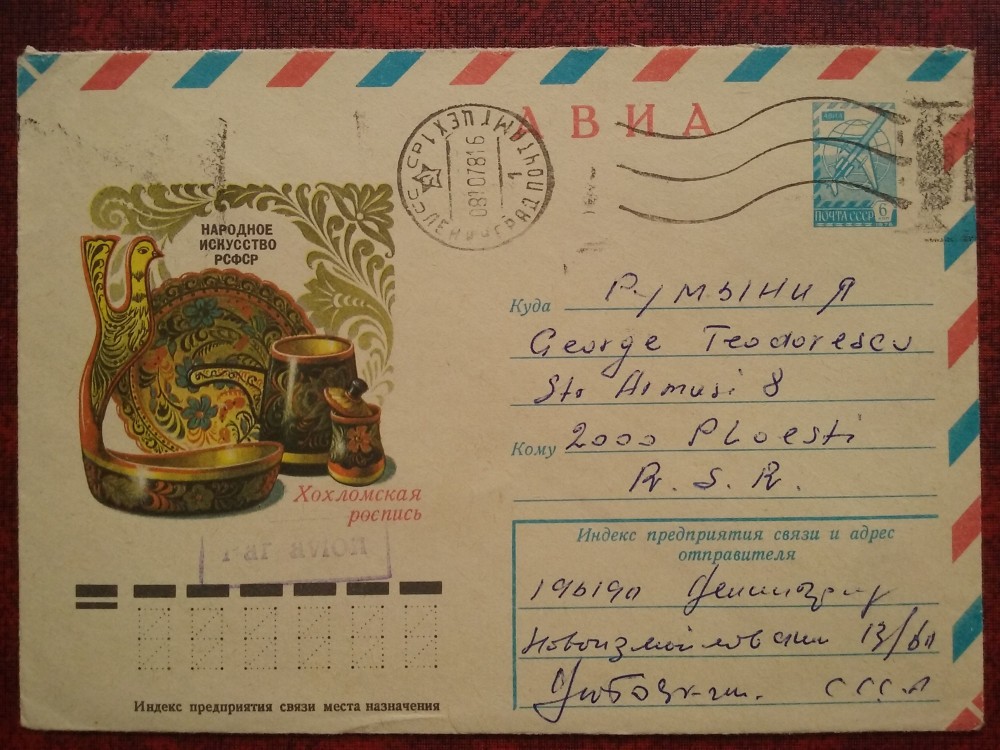 АВИА
АВИА
ПОЧТА СССР 6
СССР ЛЕНИНГРАД ПОЧТАМТ ЦЕХ 1
1
081078 16
НАРОДНОЕ
ИСКУССТВО
РСФСР
Хохломская
роспись
Куда Румыния
George Teodorescu
8
Кому 2000 Ploesti
R. S. R.
Индекс предприятия связи и адрес
отправителя
Ленинград
Новоизмайловский 13/
Индекс предприятия связи места назначения